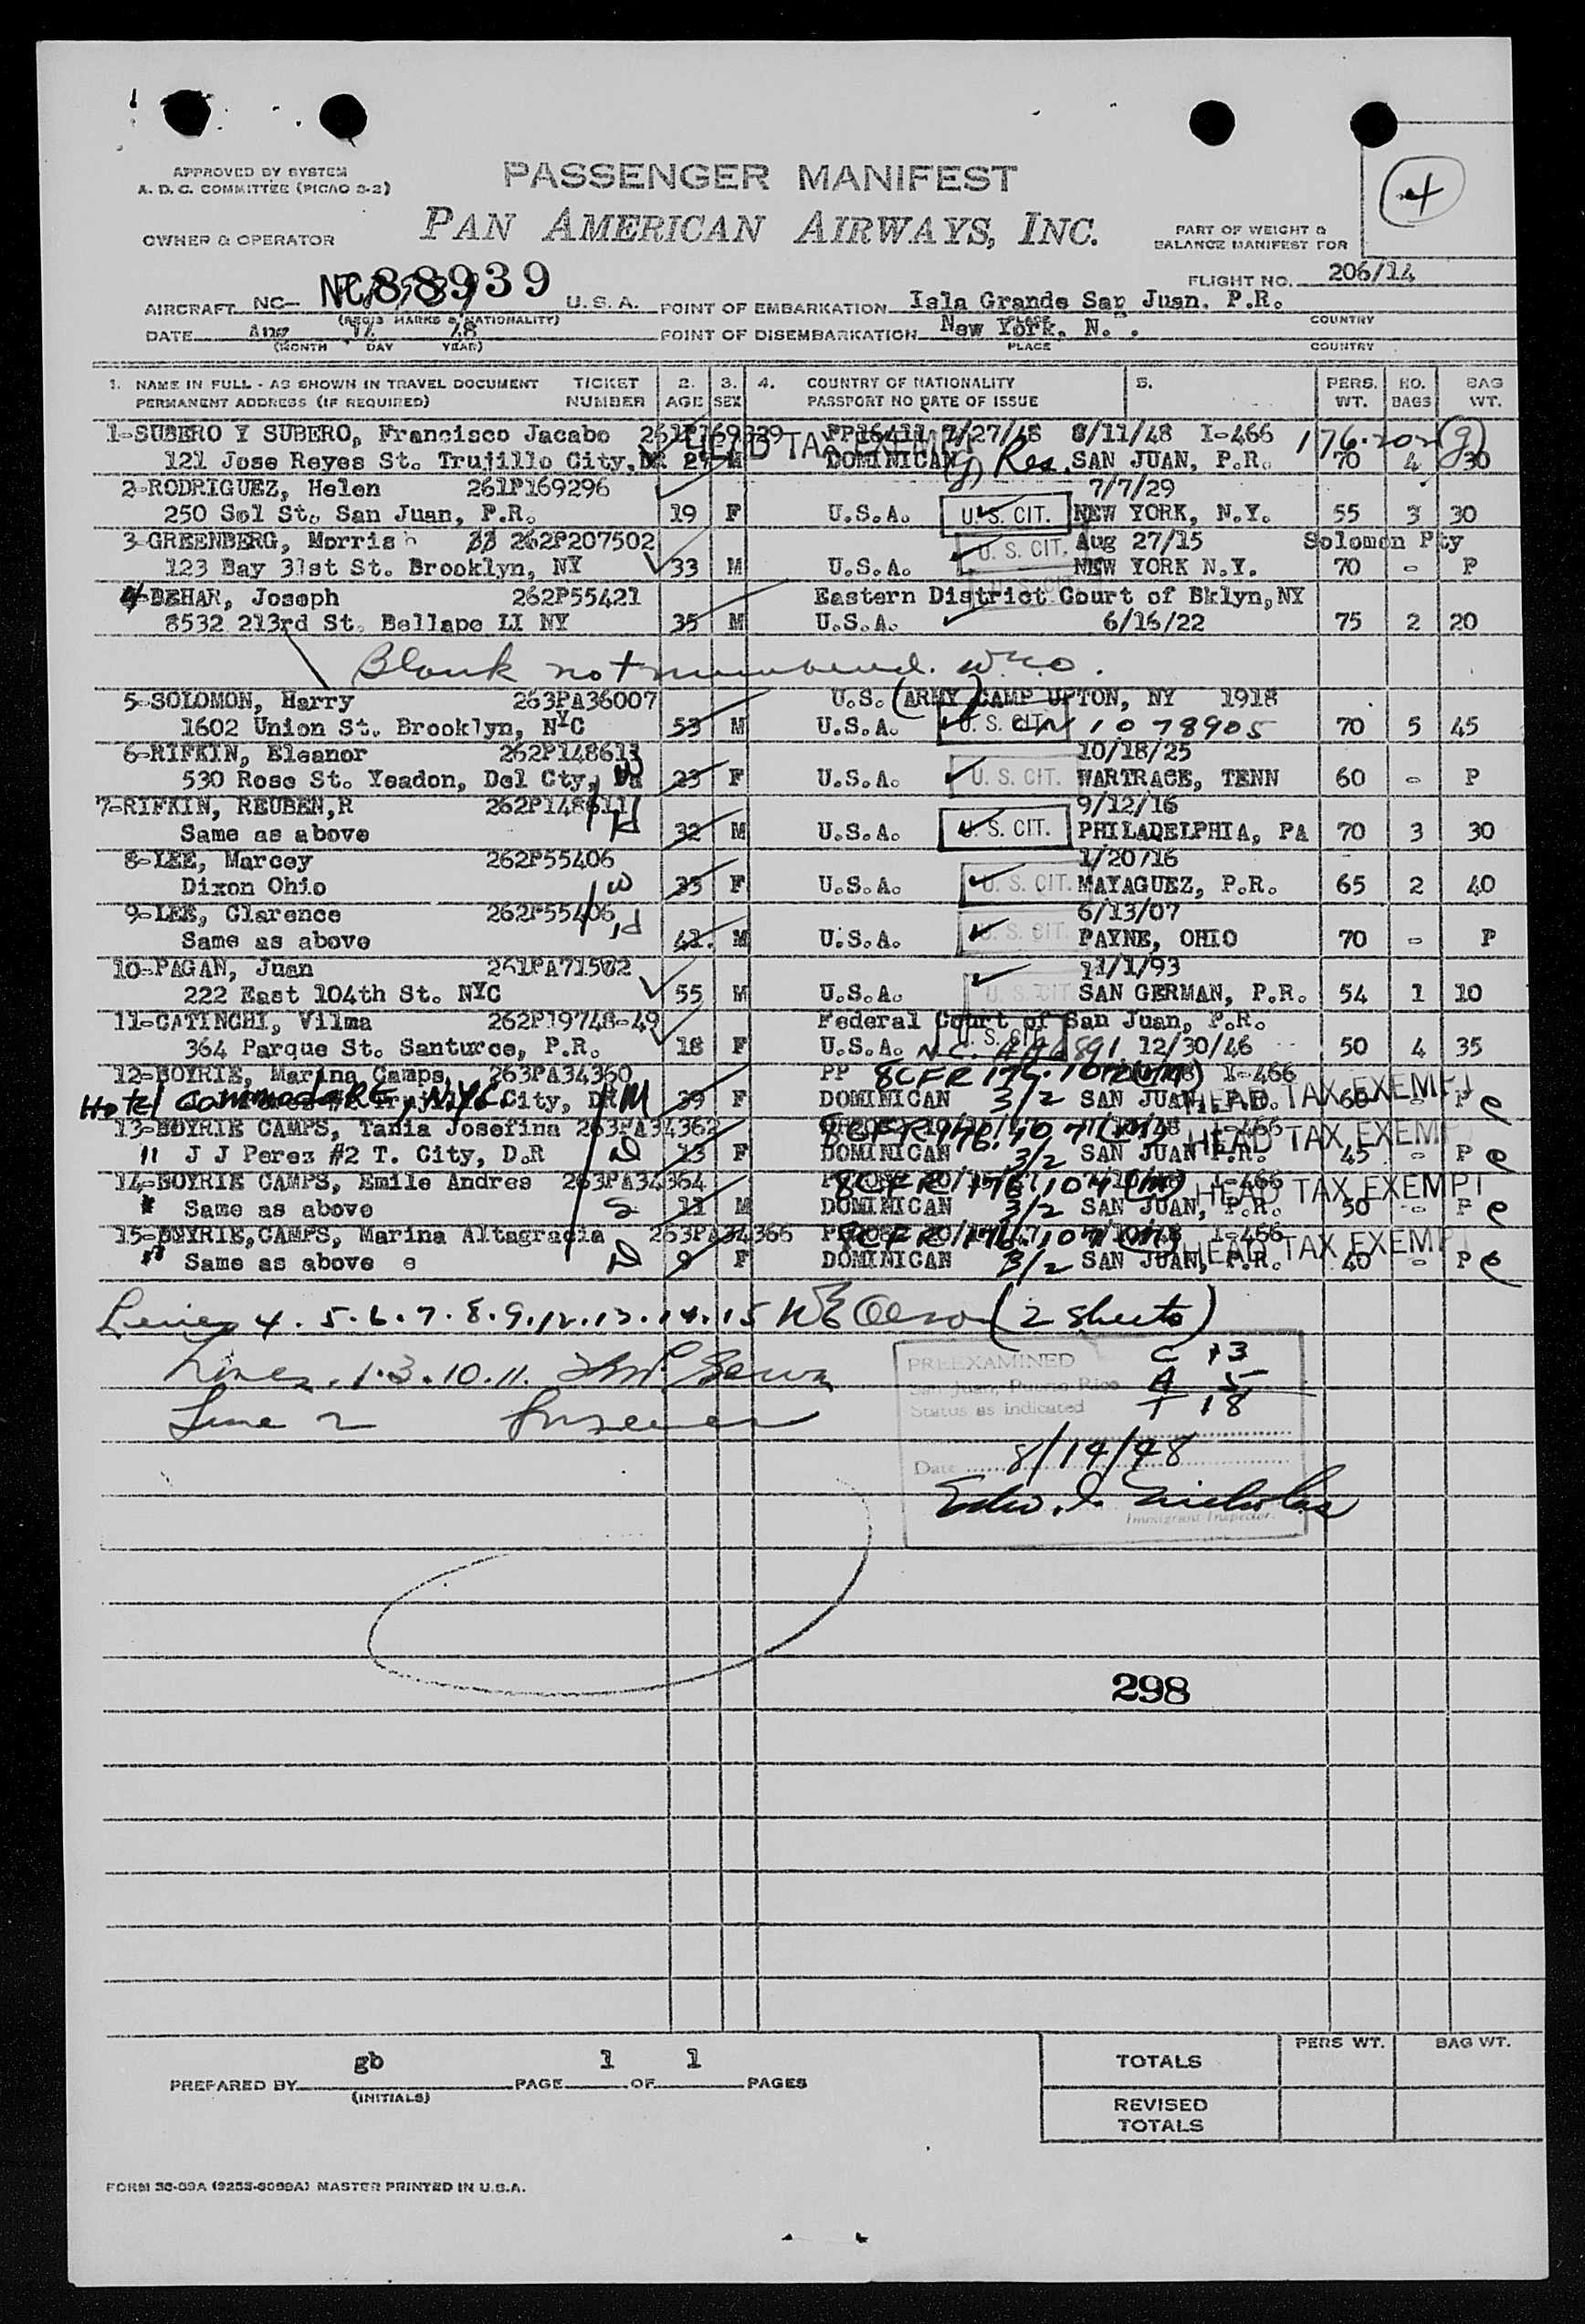 APPROVED BY SYSTEM
A. D. C. COMMITTEE (PICAO 3-2)
PASSENGER MANIFEST
4
OWNER & OPERATOR
PAN AMERICAN AIRWAYS, INC.
PART OF WEIGHT &
BALANCE MANIFEST FOR
FLIGHT NO. 206/14
AIRCRAFT NC- NC88939 U. S. A. POINT OF EMBARKATION Isla Grande San Juan. P.R.
(REGIS MARKS & NATIONALITY) PLACE COUNTRY
DATE Aug 14 48 POINT OF DISEMBARKATION New York, N. .
(MONTH DAY YEAR) PLACE COUNTRY
1. NAME IN FULL - AS SHOWN IN TRAVEL DOCUMENT TICKET 2. 3. 4. COUNTRY OF NATIONALITY 5. PERS. NO. BAG
PERMANENT ADDRESS (IF REQUIRED) NUMBER AGE SEX PASSPORT NO DATE OF ISSUE WT. BAGS WT.
1-SUBERO Y SUBERO, Francisco Jacabo 261P169339 PP16411 7/27/48 8/11/48 I-466 176.202(g)
HEAD TAX EXEMPT
121 Jose Reyes St. Trujillo City, DR 27 M DOMINICAN (g) Res. SAN JUAN, P.R. 70 4 30
2-RODRIGUEZ, Helen 261P169296 7/7/29
250 Sol St. San Juan, P.R. 19 F U.S.A. U. S. CIT. NEW YORK, N.Y. 55 3 30
3-GREENBERG, Morris 262P207502 U. S. CIT. Aug 27/15 Solomon Pty
123 Bay 31st St. Brooklyn, NY 33 M U.S.A. NEW YORK N.Y. 70 - P
4-BEHAR, Joseph 262P55421 Eastern District Court of Bklyn,NY
8532 213rd St. Bellape LI NY 35 M U.S.A. 6/16/22 75 2 20
Blank not numbered.
5-SOLOMON, Harry 263PA36007 U.S. (ARMY) CAMP UPTON, NY 1918
1602 Union St. Brooklyn, NYC 53 M U.S.A. U. S. CIT. CN 1078905 70 5 45
6-RIFKIN, Eleanor 262P148613 10/18/25
530 Rose St. Yeadon, Del Cty, Pa 23 F U.S.A. U. S. CIT. WARTRACE, TENN 60 - P
7-RIFKIN, REUBEN,R 262P148611 9/12/16
Same as above 32 M U.S.A. U. S. CIT. PHILADELPHIA, PA 70 3 30
8-LEE, Marcey 262P55406 1/20/16
Dixon Ohio 33 F U.S.A. U. S. CIT. MAYAGUEZ, P.R. 65 2 40
9-LEE, Clarence 262P55406 6/13/07
Same as above 41. M U.S.A. U. S. CIT. PAYNE, OHIO 70 - P
10-PAGAN, Juan 261PA71502 11/1/93
222 East 104th St. NYC 55 M U.S.A. U. S. CIT SAN GERMAN, P.R. 54 1 10
11-CATINCHI, Vilma 262P19748-49 Federal Court of San Juan, P.R.
364 Parque St. Santurce, P.R. 18 F U.S.A. U. S. CIT. 12/30/46 50 4 35
12-BOYRIE, Marina Camps 263PA34360 PP 8CFR 176.107(m) I-466
Hotel Commodore, N.Y.C. City, DR M 39 F DOMINICAN 3/2 SAN JUAN, P.R. HEAD TAX EXEMPT 60 - P e
13-BOYRIE CAMPS, Tania Josefina 263PA34362 8CFR 176.107(m) I-466
" J J Perez #2 T. City, D.R D 13 F DOMINICAN 3/2 SAN JUAN P.R. HEAD TAX EXEMPT 45 - P e
14-BOYRIE CAMPS, Emile Andres 263PA34364 8CFR 176.107(m) I-466
" Same as above S 11 M DOMINICAN 3/2 SAN JUAN, P.R. HEAD TAX EXEMPT 50 - P e
15-BOYRIE,CAMPS, Marina Altagracia 263PA34366 8CFR 176.107(m) I-466
" Same as above e D 9 F DOMINICAN 3/2 SAN JUAN, P.R. HEAD TAX EXEMPT 40 - P e
Lines 4. 5. 6. 7. 8. 9. 12. 13. 14. 15 (2 sheets)
Lines. 1. 3. 10. 11.
Line 2
PREEXAMINED C 13
San Juan, Puerto Rico A 5
Status as indicated T 18
Date 8/14/48
Edw. J. Nicholas
Immigrant Inspector.
298
PERS WT. BAG WT.
TOTALS
PREPARED BY gb PAGE 1 OF 1 PAGES
(INITIALS)
REVISED
TOTALS
FORM 36-09A (9253-6099A) MASTER PRINTED IN U.S.A.